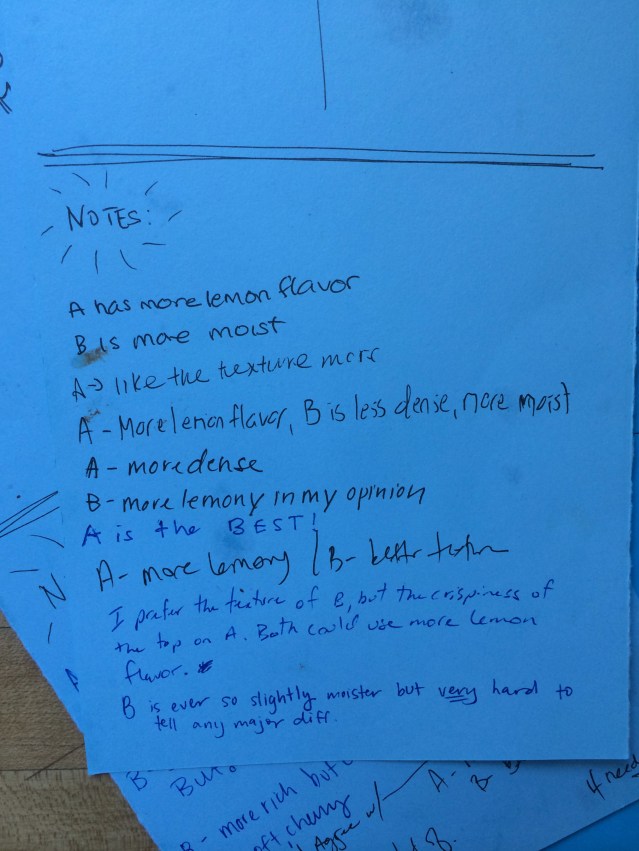 NOTES:
A has more lemon flavor
B is more moist
A → like the texture more
A - More lemon flavor, B is less dense, more moist
A - more dense
B - more lemony in my opinion
A is the BEST!
A - more lemony / B - better texture
I prefer the texture of B, but the crispiness of
the top on A. Both could use more lemon
flavor.
B is ever so slightly moister but very hard to
tell any major diff.
N
A
B -
B - more rich but
soft chewy
Agree w/
A -
B
4 need